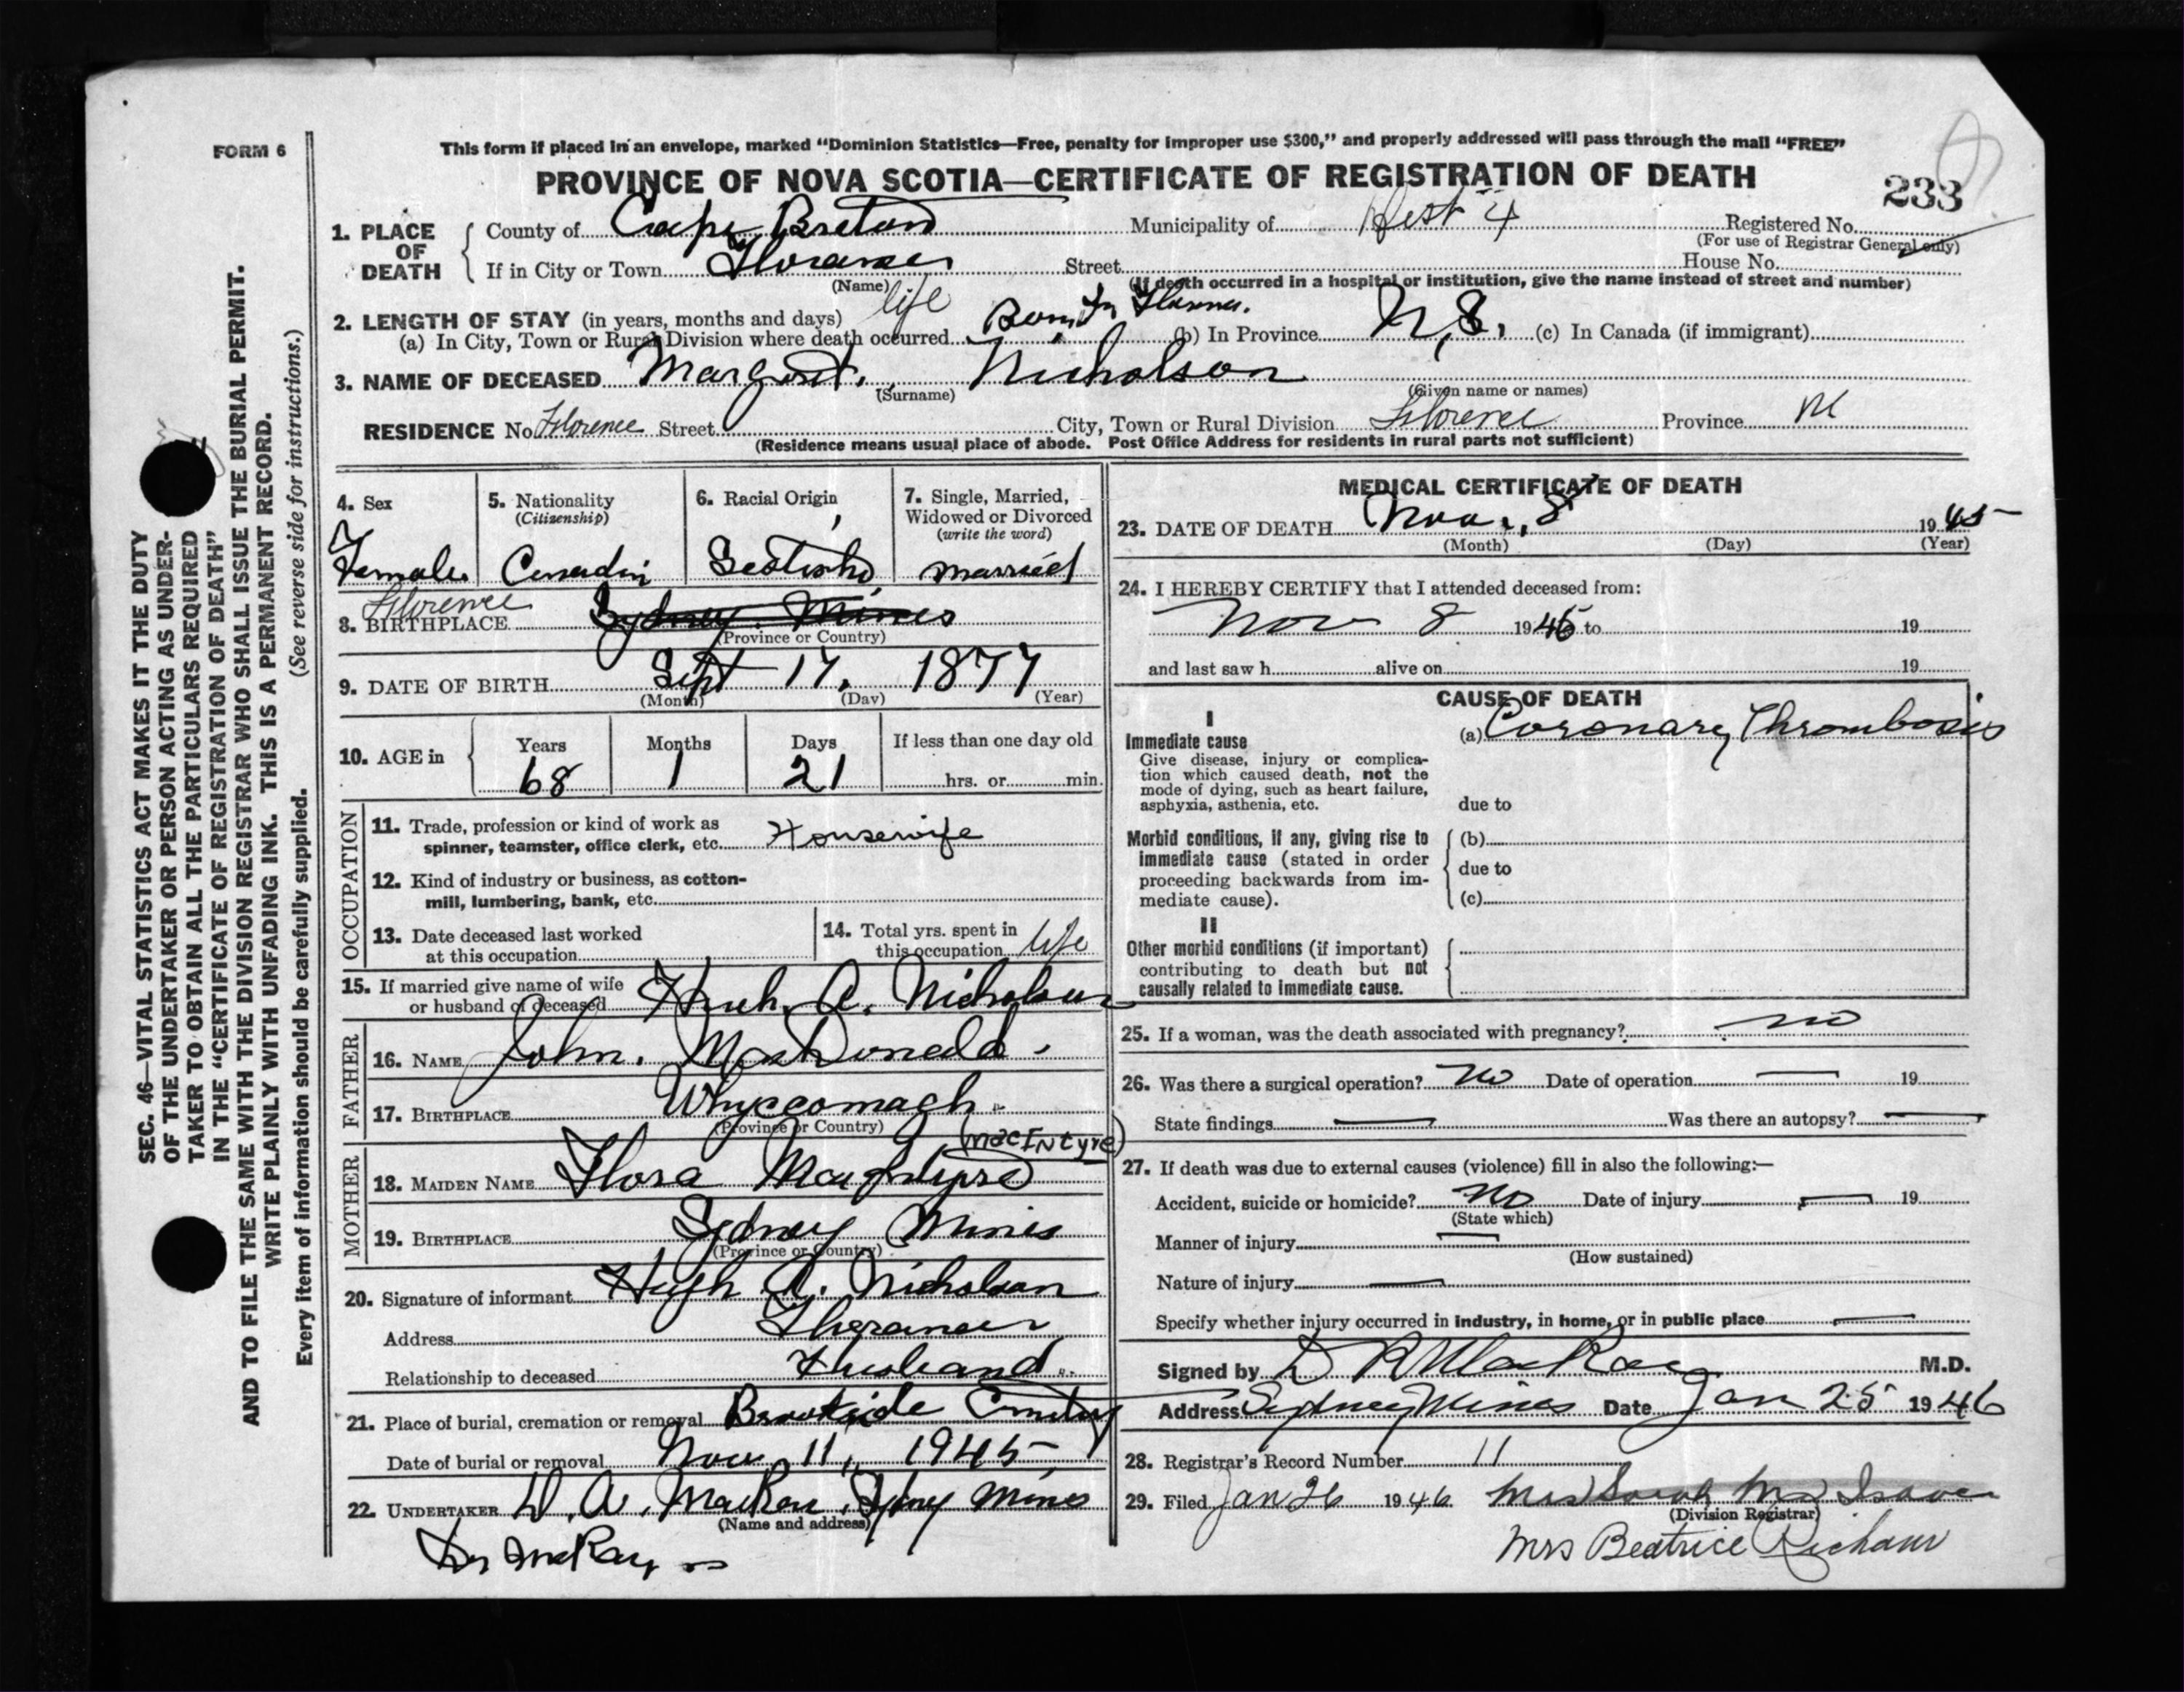 FORM 6
This form if placed in an envelope, marked "Dominion Statistics—Free, penalty for improper use $300," and properly addressed will pass through the mail "FREE"
PROVINCE OF NOVA SCOTIA—CERTIFICATE OF REGISTRATION OF DEATH
233
1. PLACE OF DEATH { County of Cape Breton Municipality of Dist 4 Registered No.
(For use of Registrar General only)
If in City or Town Street House No.
(Name) (If death occurred in a hospital or institution, give the name instead of street and number)
2. LENGTH OF STAY (in years, months and days) life
(a) In City, Town or Rural Division where death occurred Born In (b) In Province N.S. (c) In Canada (if immigrant)
3. NAME OF DECEASED Margret. Nicholson
(Surname) (Given name or names)
RESIDENCE No. Florence Street City, Town or Rural Division Florence Province
(Residence means usual place of abode. Post Office Address for residents in rural parts not sufficient)
4. Sex Female
5. Nationality (Citizenship)
6. Racial Origin
7. Single, Married, Widowed or Divorced (write the word) married
8. BIRTHPLACE Florence Sydney Mines
(Province or Country)
9. DATE OF BIRTH Sept 17, 1877
(Month) (Day) (Year)
10. AGE in { Years 68 Months 1 Days 21 If less than one day old hrs. or min.
OCCUPATION
11. Trade, profession or kind of work as
spinner, teamster, office clerk, etc. Housewife
12. Kind of industry or business, as cotton-
mill, lumbering, bank, etc.
13. Date deceased last worked
at this occupation
14. Total yrs. spent in
this occupation life
15. If married give name of wife
or husband of deceased Hugh. A. Nicholson
FATHER
16. NAME John. MacDonald.
17. BIRTHPLACE Whycocomagh
(Province or Country)
(MacIntyre)
MOTHER
18. MAIDEN NAME Flora
19. BIRTHPLACE Sydney Mines
(Province or Country)
20. Signature of informant Hugh A. Nicholson
Address
Relationship to deceased Husband
21. Place of burial, cremation or removal Brookside Cemetery
Date of burial or removal Nov 11, 1945
22. UNDERTAKER D. A. MacRae. Sydney Mines
(Name and address)
Dr McRay
MEDICAL CERTIFICATE OF DEATH
23. DATE OF DEATH Nov, 8 1945
(Month) (Day) (Year)
24. I HEREBY CERTIFY that I attended deceased from:
Nov 8 1945 to 19
and last saw h alive on 19
CAUSE OF DEATH
I
Immediate cause
Give disease, injury or complica-
tion which caused death, not the
mode of dying, such as heart failure,
asphyxia, asthenia, etc.
(a) Coronary Thrombosis
due to
Morbid conditions, if any, giving rise to
immediate cause (stated in order
proceeding backwards from im-
mediate cause).
(b)
due to
(c)
II
Other morbid conditions (if important)
contributing to death but not
causally related to immediate cause.
25. If a woman, was the death associated with pregnancy? no
26. Was there a surgical operation? no Date of operation — 19
State findings — Was there an autopsy? —
27. If death was due to external causes (violence) fill in also the following:—
Accident, suicide or homicide? no Date of injury — 19
(State which)
Manner of injury —
(How sustained)
Nature of injury —
Specify whether injury occurred in industry, in home, or in public place —
Signed by M.D.
Address Sydney Mines Date Jan 25 1946
28. Registrar's Record Number 11
29. Filed Jan 26 1946 Mrs
(Division Registrar)
Mrs Beatrice
SEC. 46—VITAL STATISTICS ACT MAKES IT THE DUTY
OF THE UNDERTAKER OR PERSON ACTING AS UNDER-
TAKER TO OBTAIN ALL THE PARTICULARS REQUIRED
IN THE "CERTIFICATE OF REGISTRATION OF DEATH"
AND TO FILE THE SAME WITH THE DIVISION REGISTRAR WHO SHALL ISSUE THE BURIAL PERMIT.
WRITE PLAINLY WITH UNFADING INK. THIS IS A PERMANENT RECORD.
Every item of information should be carefully supplied. (See reverse side for instructions.)